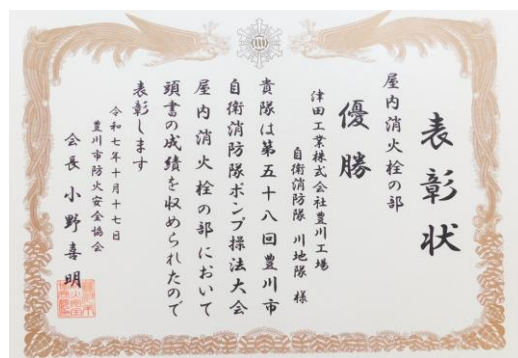 表彰状
屋内消火栓の部
優勝
津田工業株式会社豊川工場
自衛消防隊 川地隊 様
貴隊は第五十八回豊川市
自衛消防隊ポンプ操法大会
屋内消火栓の部において
頭書の成績を収められたので
表彰します
令和七年十月十七日
豊川市防火安全協会
会長 小野喜明